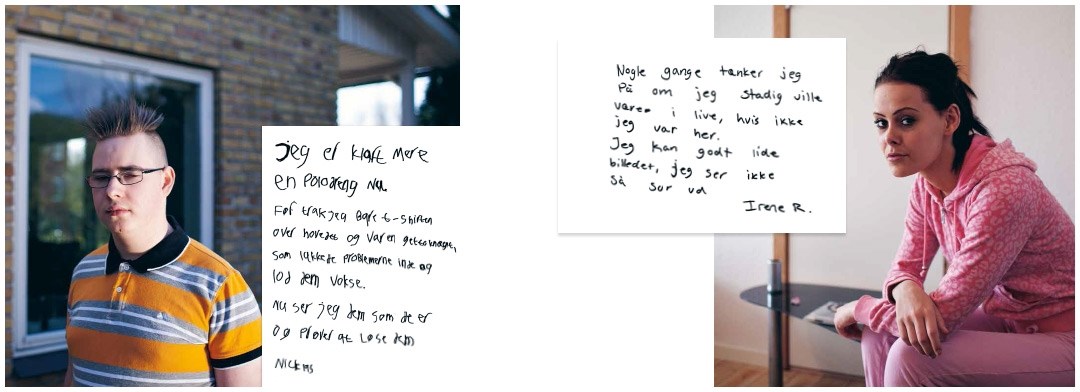 jeg er klart mere
en
Før trak jeg Bare t-shirten
over hovedet og var en
som lukkede problemerne inde og
lod dem vokse.
Nu ser jeg dem som de er
Og Prøver at Løse dem
Nogle gange tænker jeg
På om jeg stadig ville
være i live, hvis ikke
jeg var her.
Jeg kan godt lide
billedet, jeg ser ikke
så sur ud
Irene R.